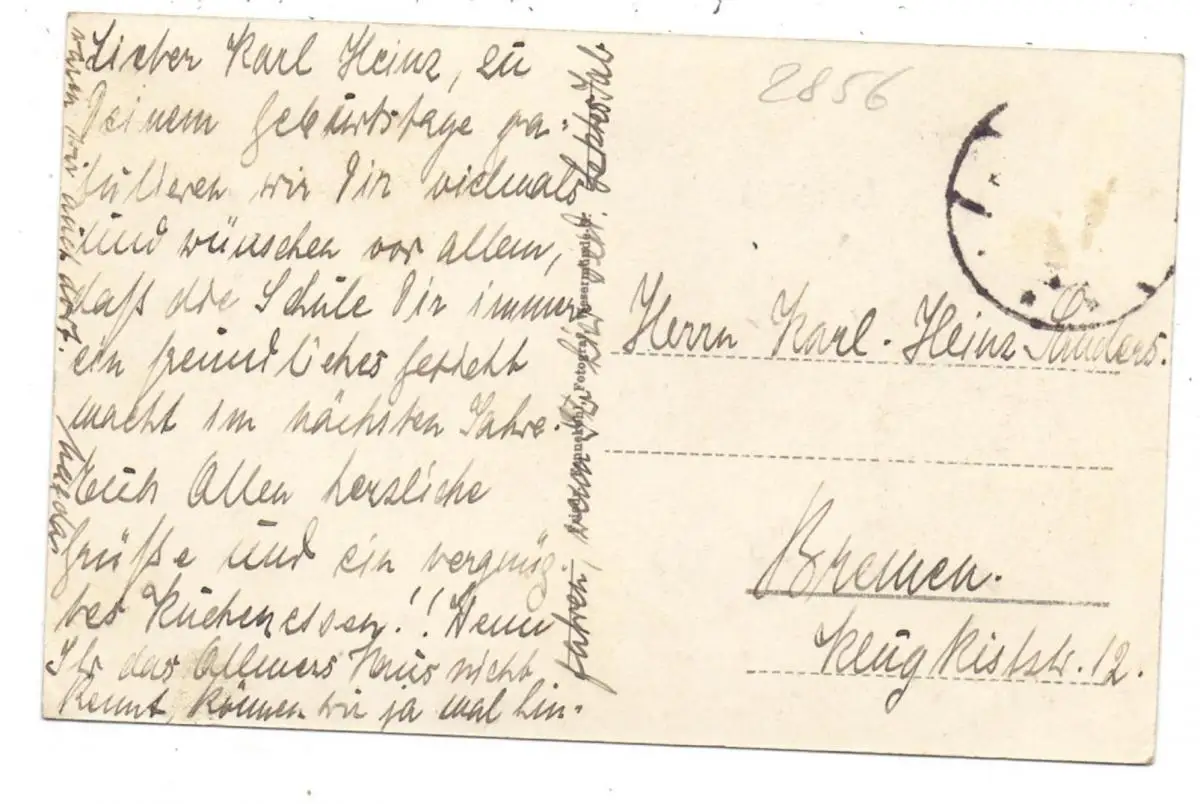 Lieber Karl Heinz, zu
Deinem Geburtstage gra-
tulieren wir Dir vielmals
und wünschen vor allem,
daß die Schule Dir immer
ein freundliches Gesicht
macht im nächsten Jahre.
Euch Allen herzliche
Grüße und ein vergnüg-
tes Kuchenessen!! Wenn
Ihr das Allmers Haus nicht
kennt, können wir ja mal hin-
fahren, wenn Ihr hier seid. Letztes Jahr
waren wir auch dort.
2856
Fotograf, Wesermünde-G.
Herrn Karl-Heinz Sanders.
Bremen.
Klugkiststr. 12.